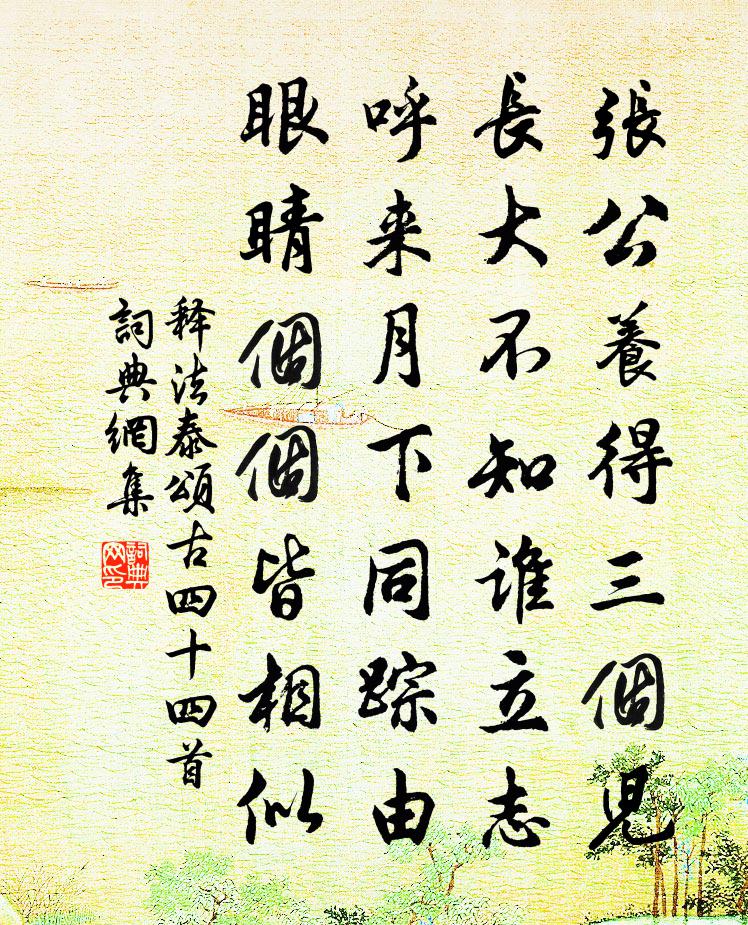 張公養得三個児
長大不知谁立志
呼来月下同踪由
眼睛個個皆相似
释法泰頌古四十四首
詞典網集
詞典网印